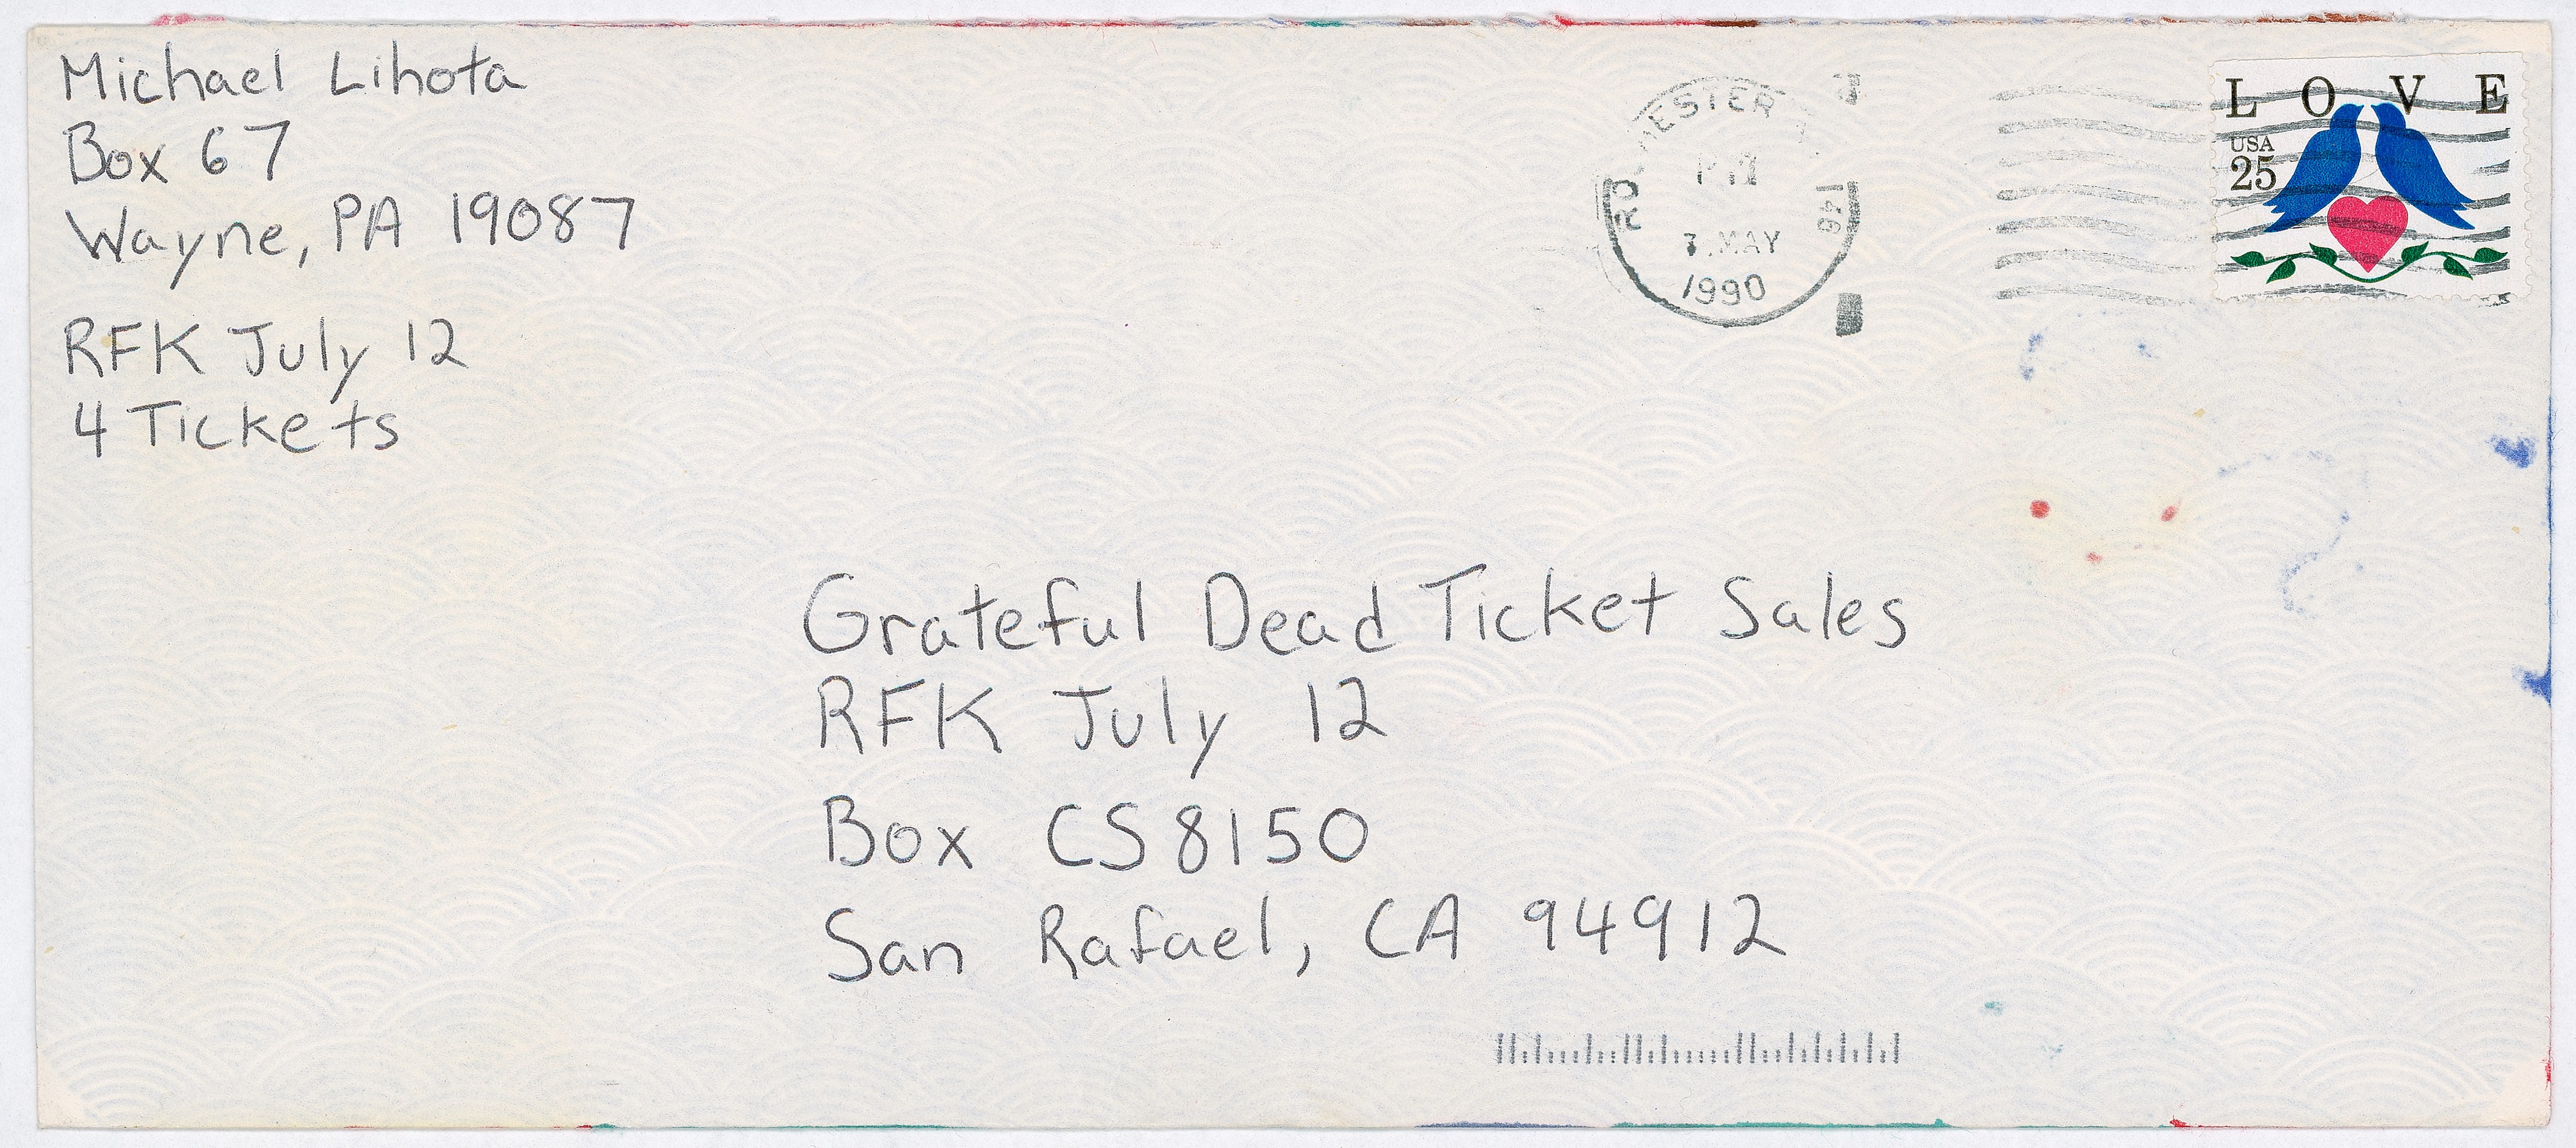 Michael Lihota
Box 67
Wayne, PA 19087
RFK July 12
4 Tickets
PM
MAY
1990
L O V E
USA
25
Grateful Dead Ticket Sales
RFK July 12
Box CS 8150
San Rafael, CA 94912